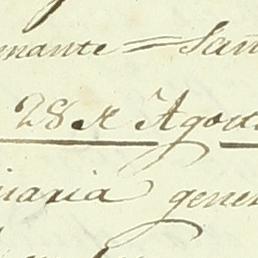 mante = San
28 de Agost
iaria gener